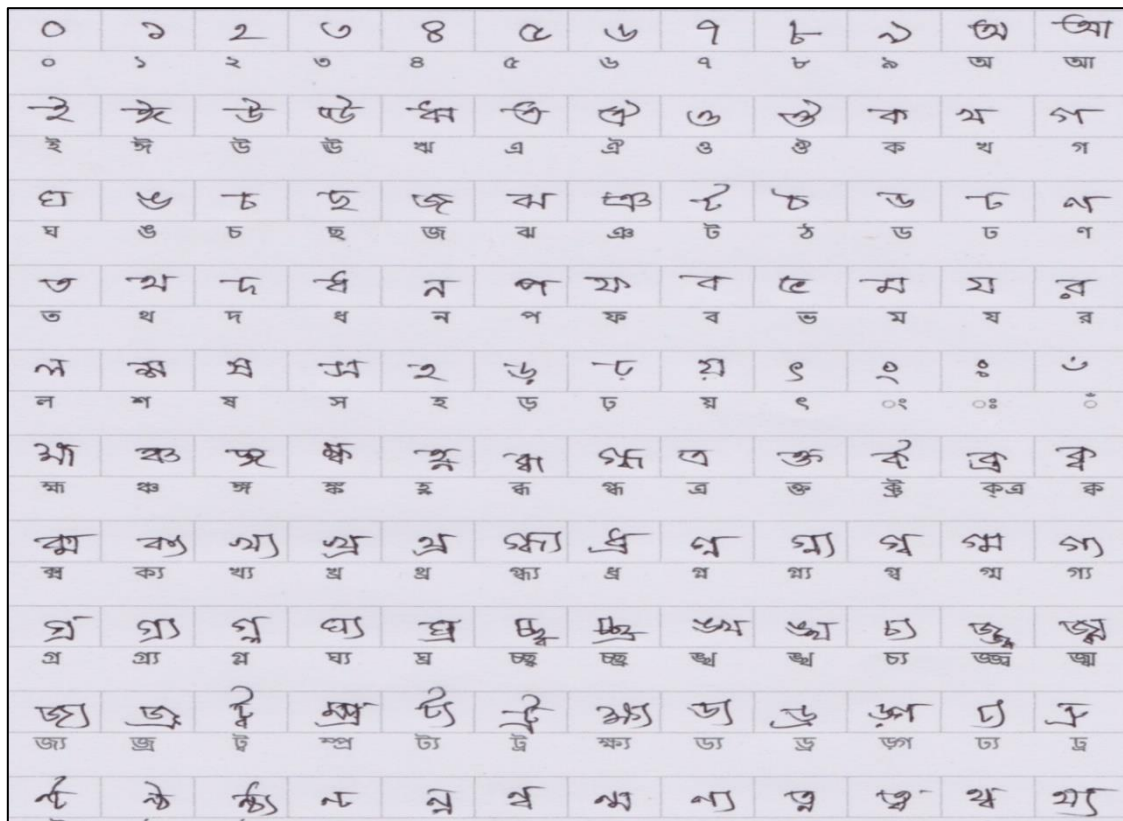 ০ ১ ২ ৩ ৪ ৫ ৬ ৭ ৮ ৯ অ আ
০ ১ ২ ৩ ৪ ৫ ৬ ৭ ৮ ৯ অ আ
ই ঈ উ ঊ ঋ এ ঐ ও ঔ ক খ গ
ই ঈ উ ঊ ঋ এ ঐ ও ঔ ক খ গ
ঘ ঙ চ ছ জ ঝ ঞ ট ঠ ড ঢ ণ
ঘ ঙ চ ছ জ ঝ ঞ ট ঠ ড ঢ ণ
ত থ দ ধ ন প ফ ব ভ ম য র
ত থ দ ধ ন প ফ ব ভ ম য র
ল শ ষ স হ ড় ঢ় য় ৎ ং ঃ ঁ
ল শ ষ স হ ড় ঢ় য় ৎ ং ঃ ঁ
ঞ্চ ঙ্গ হ্ন ত্র ক্ত ক্র ক্ব
ঞ্চ ঙ্গ ঙ্ক হ্ন ব্ধ গ্ধ ত্র ক্ত ক্ট্র ক্ব
ক্য খ্য খ্র থ্র গ্ধ্য ধ্র গ্ন গ্ন্য গ্ব গ্ম গ্য
ক্য খ্য খ্র থ্র গ্ধ্য ধ্র গ্ন গ্ন্য গ্ব গ্ম গ্য
গ্র গ্র্য গ্ল ঘ্য ঘ্র চ্ছ্ব চ্ছ্র ঙ্খ ঙ্খ চ্য জ্জ্ব
গ্র গ্র্য গ্ল ঘ্য ঘ্র চ্ছ্ব চ্ছ্র ঙ্খ ঙ্খ চ্য জ্জ্ব
জ্য জ্র ট্ব ম্প্র ট্য ট্র ক্ষ্য ড্য ড্র ড়্গ ঢ্য ঢ্র
জ্য জ্র ট্ব ম্প্র ট্য ট্র ক্ষ্য ড্য ড্র ড়্গ ঢ্য ঢ্র
ণ্ট ণ্ঠ ণ্ঠ্য ণ্ড ণ্ন ণ্ব ণ্ম ণ্য ত্ন ত্ব থ্ব থ্য